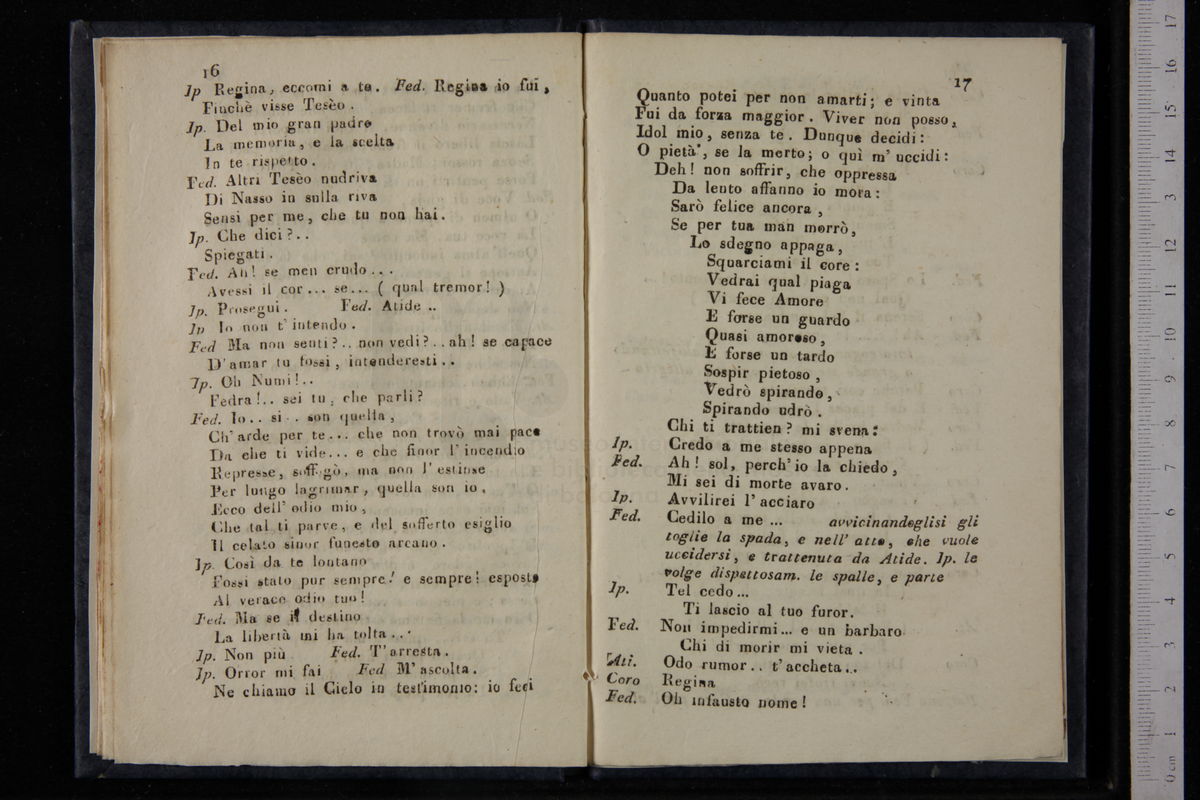 16
Ip Regina, eccomi a te. Fed. Regina io fui,
Finchè visse Tesèo.
Ip. Del mio gran padre
La memoria, e la scelta
In te rispetto.
Fed. Altri Tesèo nudriva
Di Nasso in sulla riva
Sensi per me, che tu non hai.
Ip. Che dici?..
Spiegati.
Fed. Ah! se men crudo...
Avessi il cor... se... ( qual tremor! )
Ip. Prosegui. Fed. Atide ..
Ip Io non t'intendo.
Fed Ma non senti?.. non vedi?..ah! se capace
D'amar tu fossi, intenderesti..
Ip. Oh Numi!..
Fedra!.. sei tu, che parli?
Fed. Io.. si.. son quella,
Ch'arde per te... che non trovò mai pace
Da che ti vide... e che finor l'incendio
Represse, soffogò, ma non l'estinse
Per lungo lagrimar, quella son io,
Ecco dell'odio mio,
Che tal ti parve, e del sofferto esiglio
Il celato sinor funesto arcano.
Ip. Così da te lontano
Fossi stato pur sempre! e sempre! esposto
Al verace odio tuo!
Fed. Ma se il destino
La libertà mi ha tolta...
Ip. Non più Fed. T'arresta.
Ip. Orror mi fai Fed M'ascolta.
Ne chiamo il Cielo in testimonio: io feci
17
Quanto potei per non amarti; e vinta
Fui da forza maggior. Viver non posso,
Idol mio, senza te. Dunque decidi:
O pietà, se la merto; o quì m'uccidi:
Deh! non soffrir, che oppressa
Da lento affanno io mora:
Sarò felice ancora,
Se per tua man morrò,
Lo sdegno appaga,
Squarciami il core:
Vedrai qual piaga
Vi fece Amore
E forse un guardo
Quasi amoroso,
E forse un tardo
Sospir pietoso,
Vedrò spirando,
Spirando udrò.
Chi ti trattien? mi svena:
Ip. Credo a me stesso appena
Fed. Ah! sol, perch'io la chiedo,
Mi sei di morte avaro.
Ip. Avvilirei l'acciaro
Fed. Cedilo a me ... avvicinandoglisi gli
toglie la spada, e nell'atto, che vuole
uccidersi, e trattenuta da Atide. Ip. le
volge dispettosam. le spalle, e parte
Ip. Tel cedo...
Ti lascio al tuo furor.
Fed. Non impedirmi... e un barbaro
Chi di morir mi vieta.
Ati. Odo rumor.. t'accheta..
Coro Regina
Fed. Oh infausto nome!